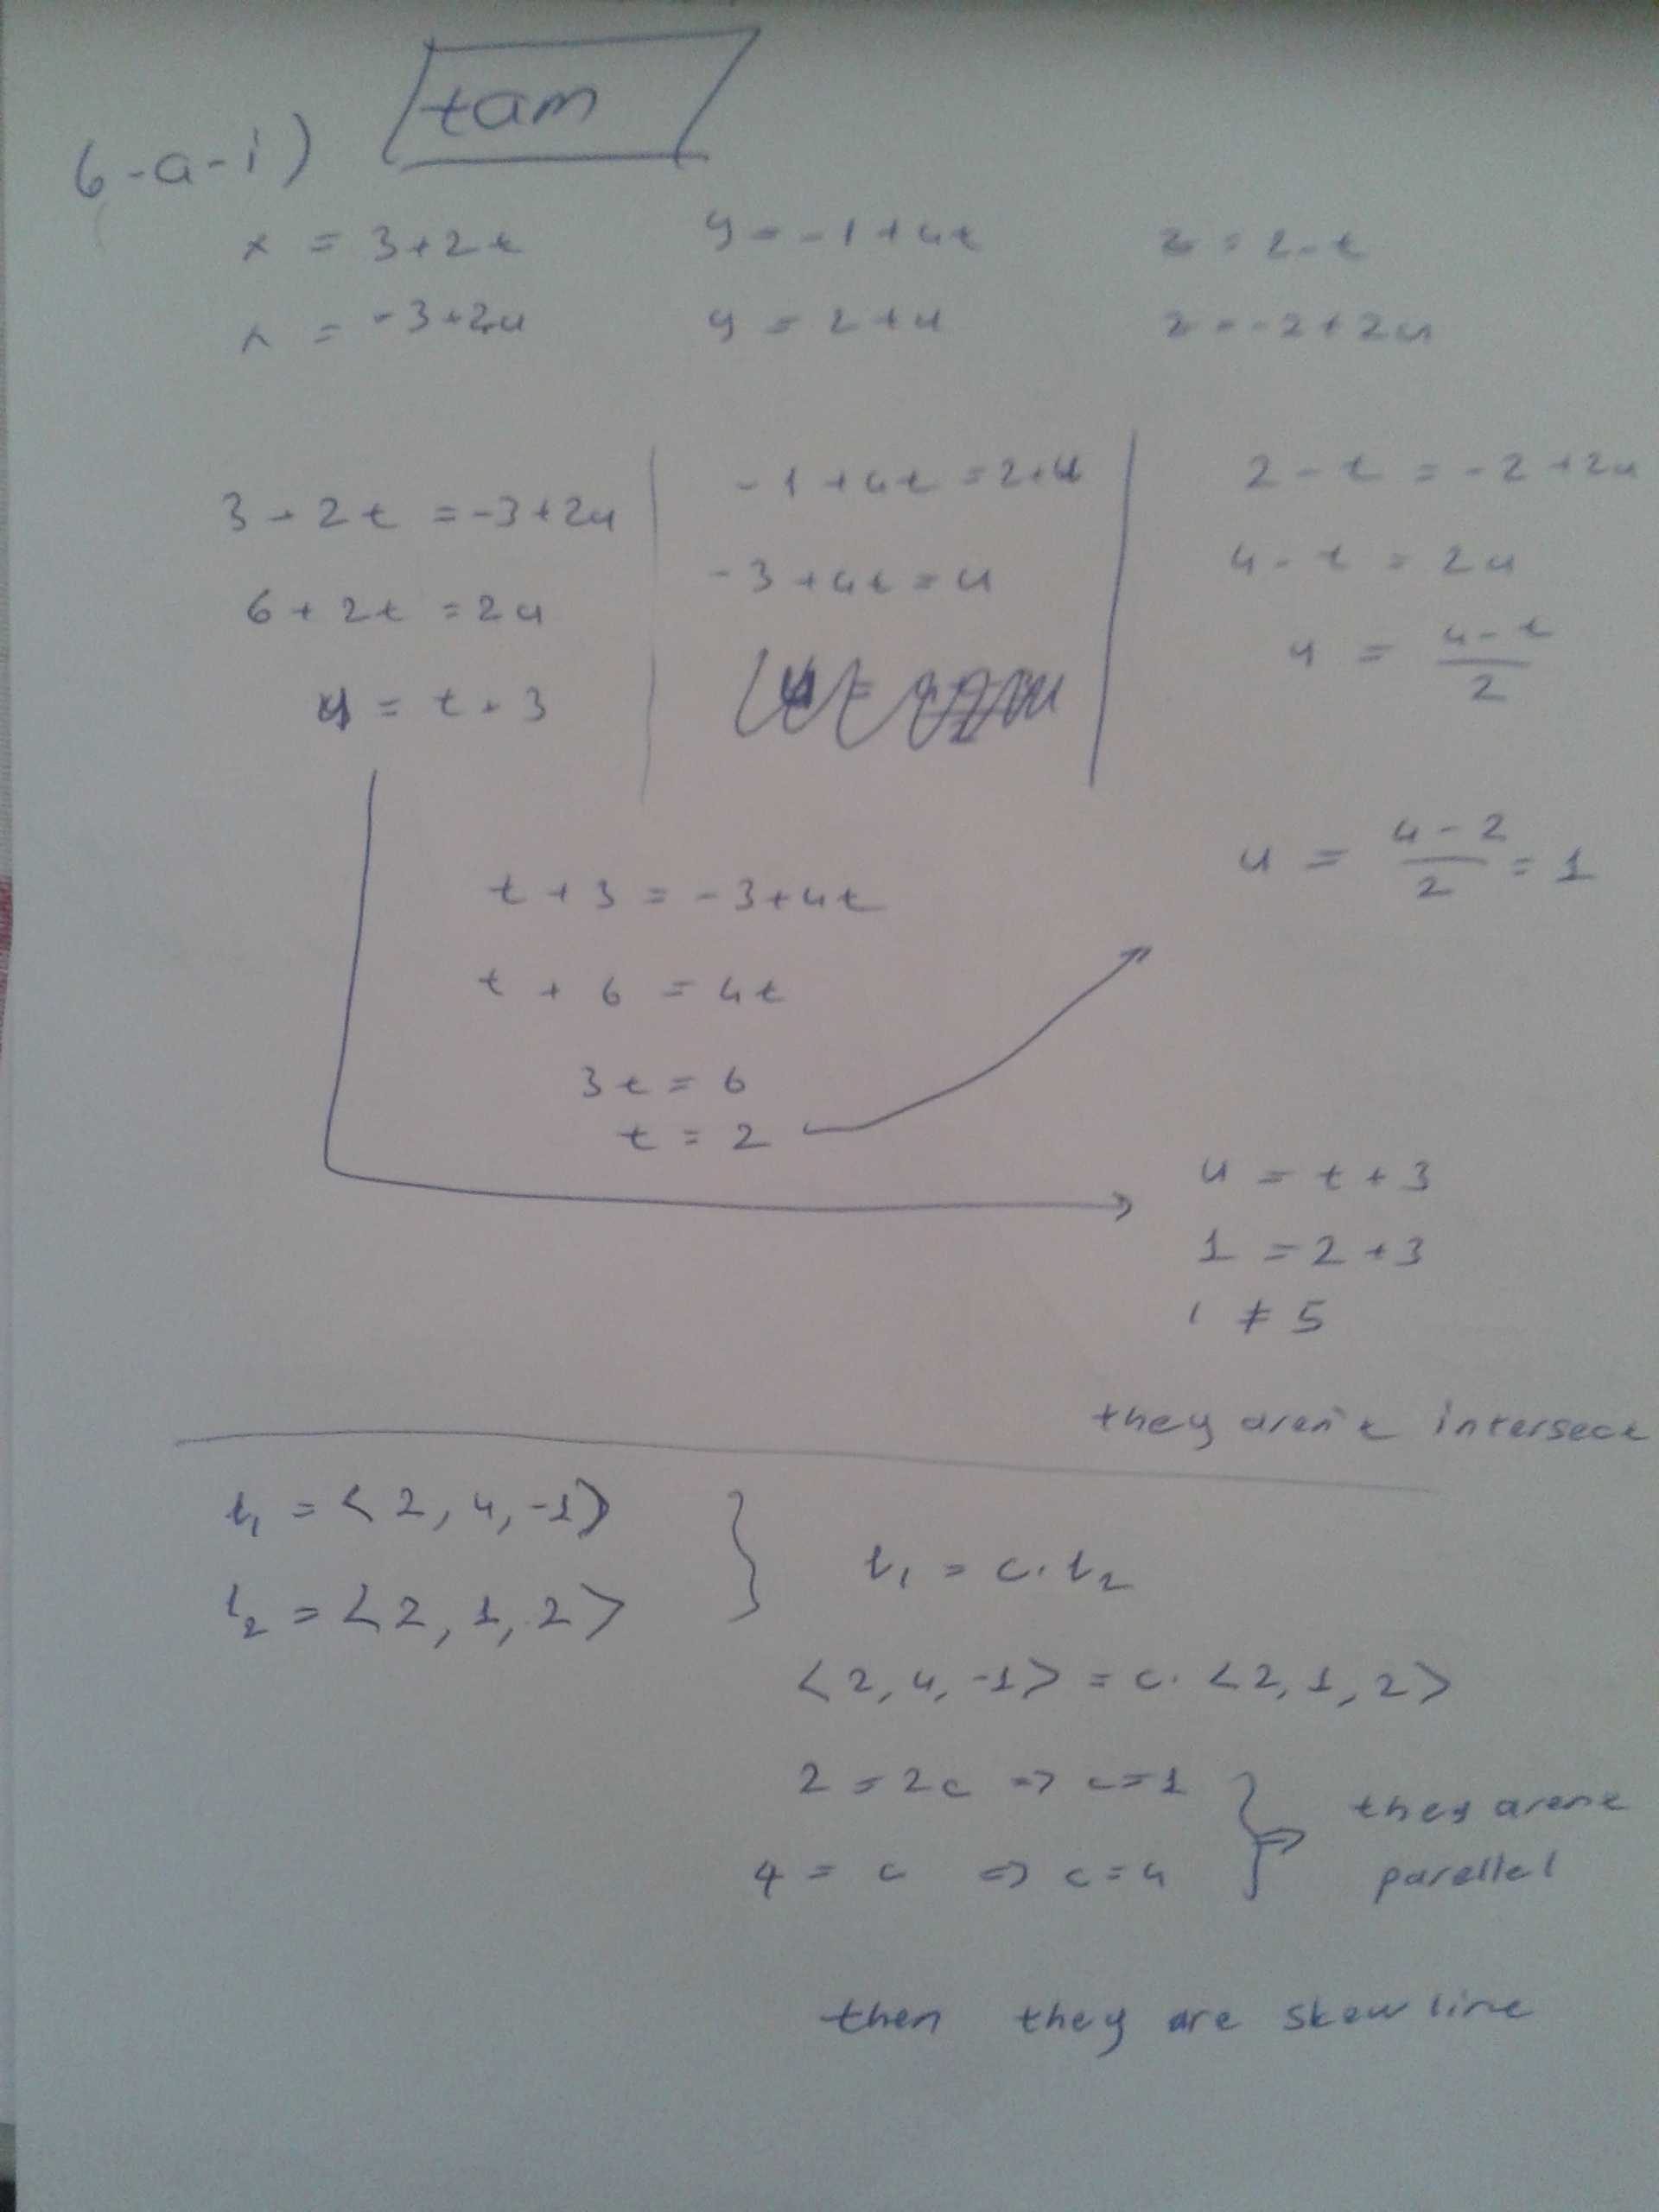 tam
6-a-i)
x = 3+2t y = -1+4t z = 2-t
x = -3+2u y = 2+u z = -2+2u
3+2t = -3+2u -1+4t = 2+u 2-t = -2+2u
6+2t = 2u -3+4t = u 4-t = 2u
u = t+3 u = (4-t)/2
u = (4-2)/2 = 1
t+3 = -3+4t
t+6 = 4t
3t = 6
t = 2
u = t+3
1 = 2+3
1 ≠ 5
they aren't intersect
l₁ = <2, 4, -1>
l₂ = <2, 1, 2>
l₁ = c. l₂
<2, 4, -1> = c. <2, 1, 2>
2 = 2c => c=1
4 = c => c=4
=> they arent
parellel
then they are skew line